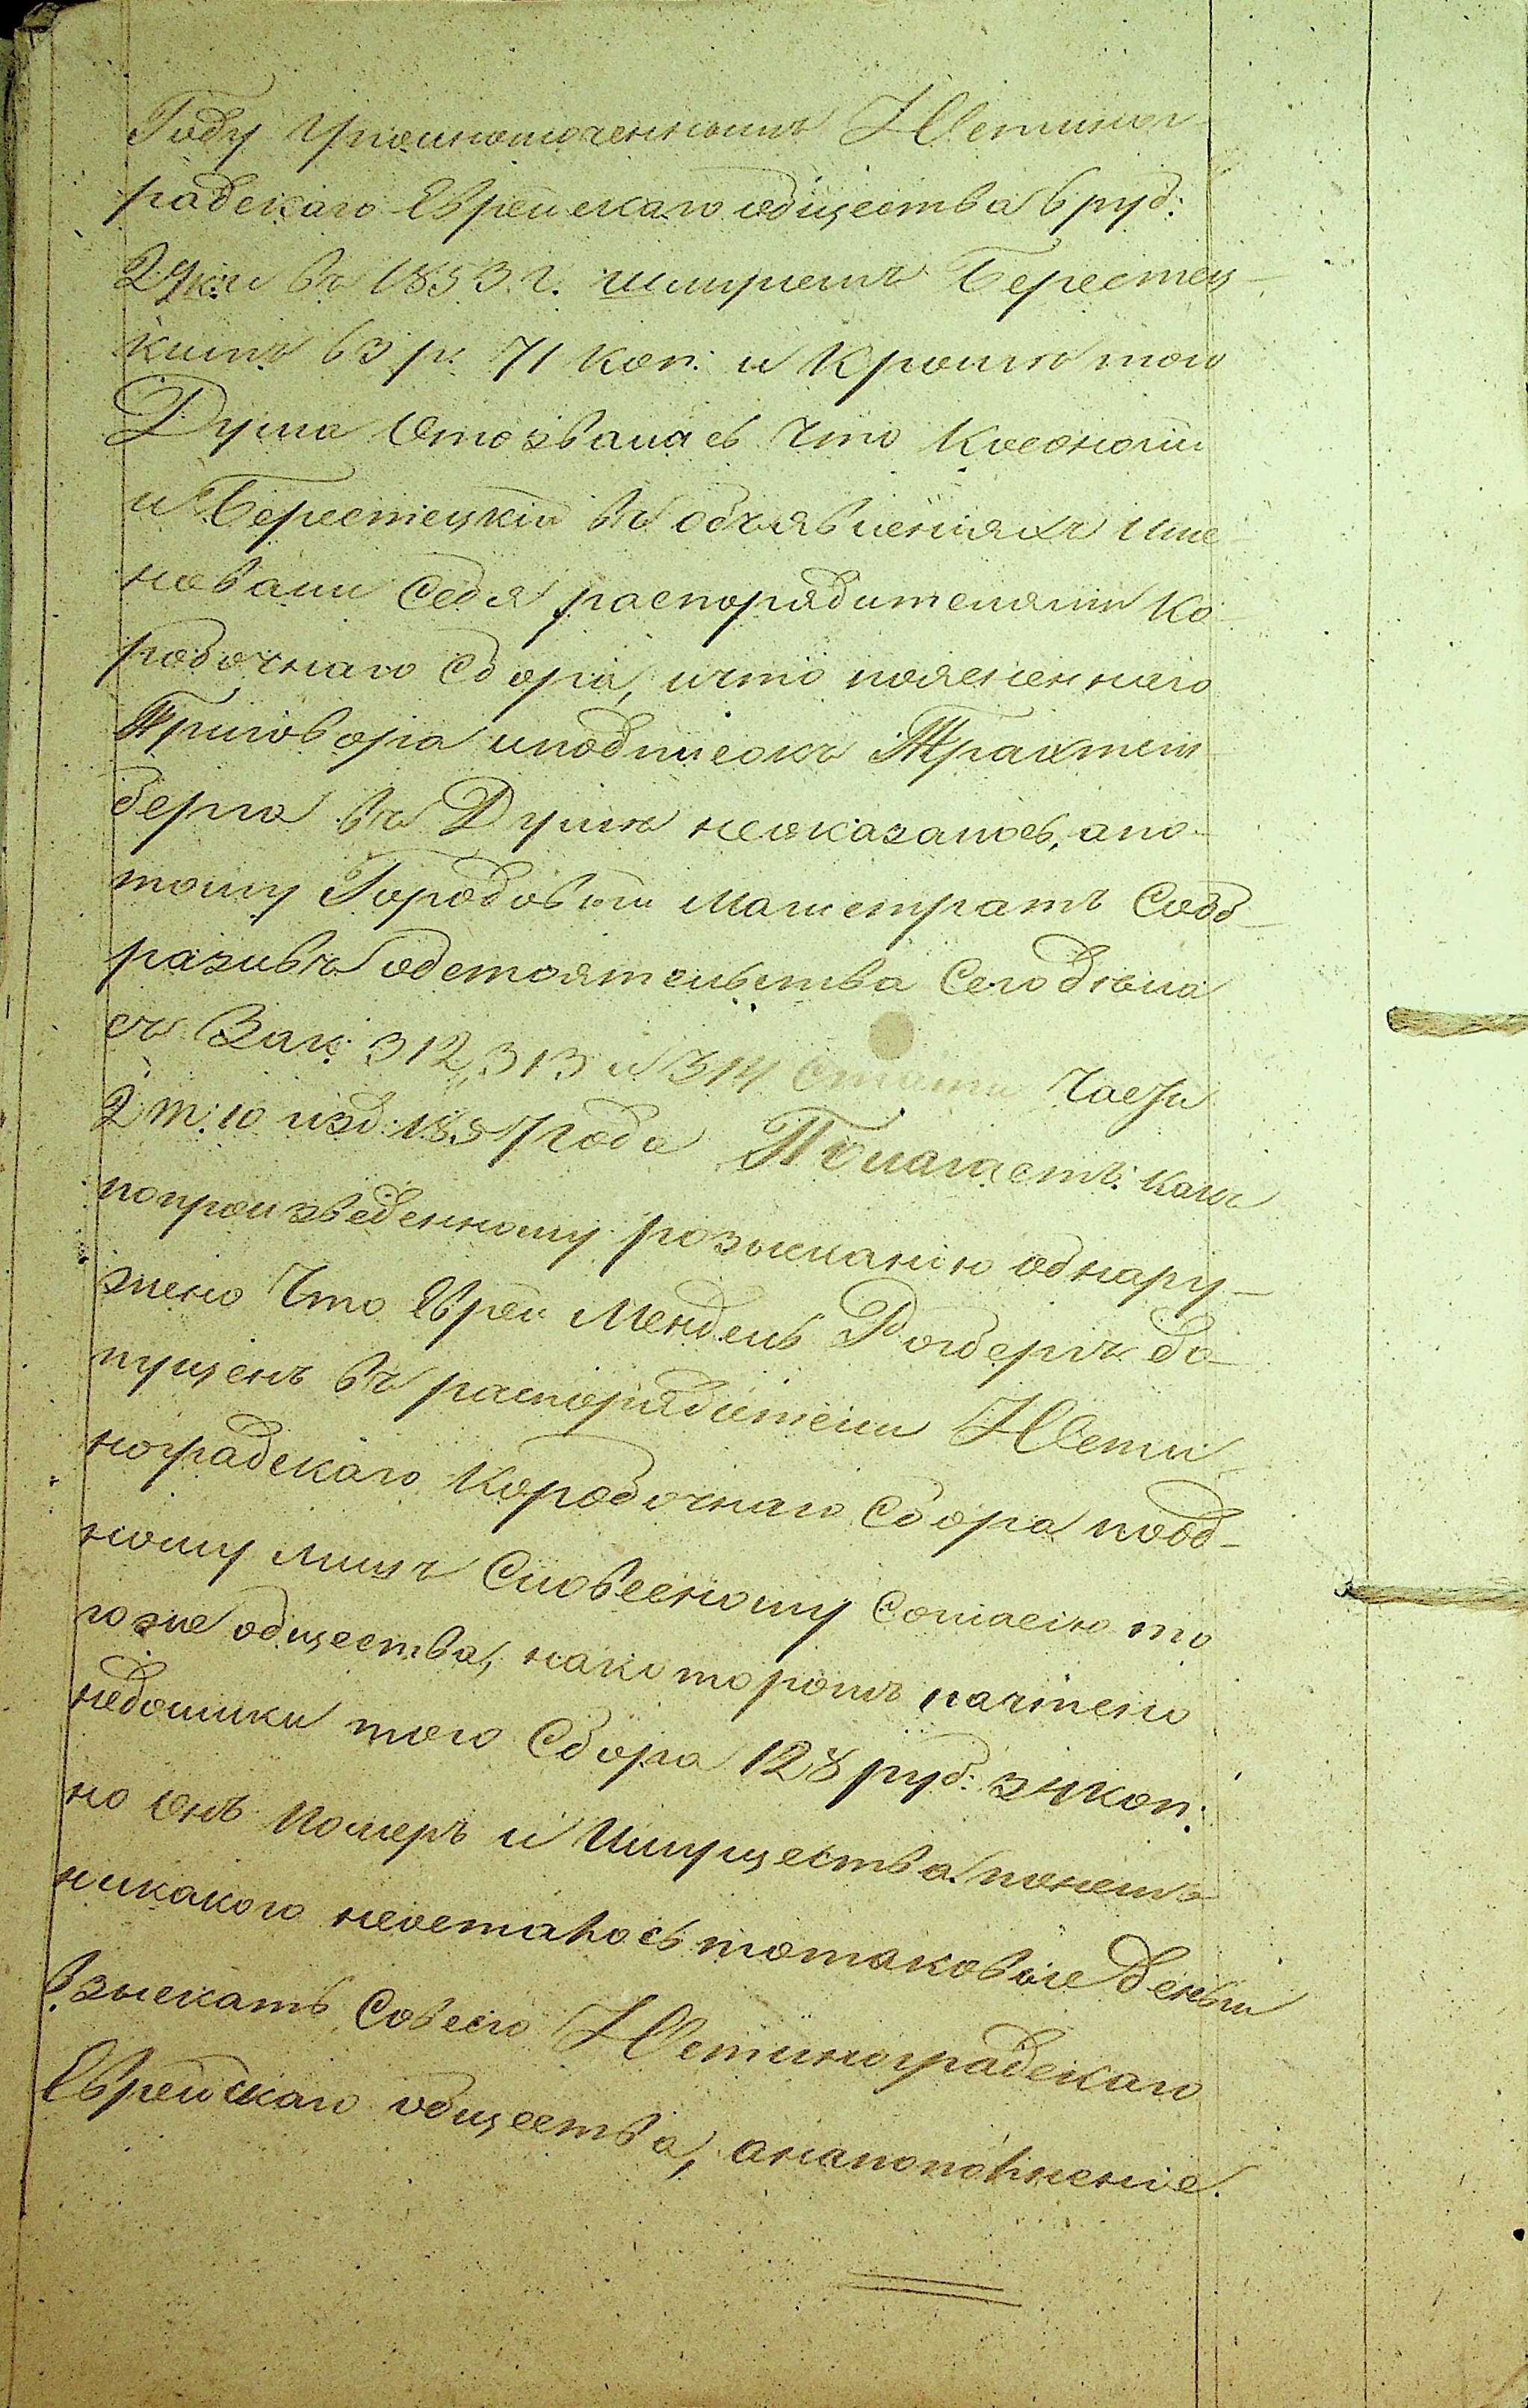 Году Уполномоченнымъ Хветиног-
радскаго Еврейскаго общества 6 руб:
2¼ к. и въ 1853 г. Шмулемъ Берестец-
кимъ 63 р. 71 коп: и Кромѣ того
Дума Отозвалась что Косоногій
и Берестецкій въ объявленіяхъ име-
новали Себя распорядителями Ко-
робочнаго Сбора, ичто поясненнаго
Приговора иподписокъ Трахтен-
берга въ Думѣ неоказалось, апо-
тому Городовый Магистратъ Сооб-
разивъ обстоятельства Сего дѣла
съ Зак: 312, 313 и 314 Статьи Части
2 т: 10 изд: 1857 года Полагаетъ: какъ
попроизведенному розысканію обнару-
жено Что Еврей Мендель Ройберхъ до-
пущенъ въ распорядители Хвети-
ноградскаго Коробочнаго Сбора пооб-
ному лишъ Словесному Согласію то
гоже общества, накоторомъ начтено
недоимки того Сбора 128 руб: 34 коп:
но онъ Померъ и Имущества понемъ
никакого неосталось тотаковые деньги
Взыскать Совсего Хветиноградскаго
Еврейскаго общества, анапополненіе